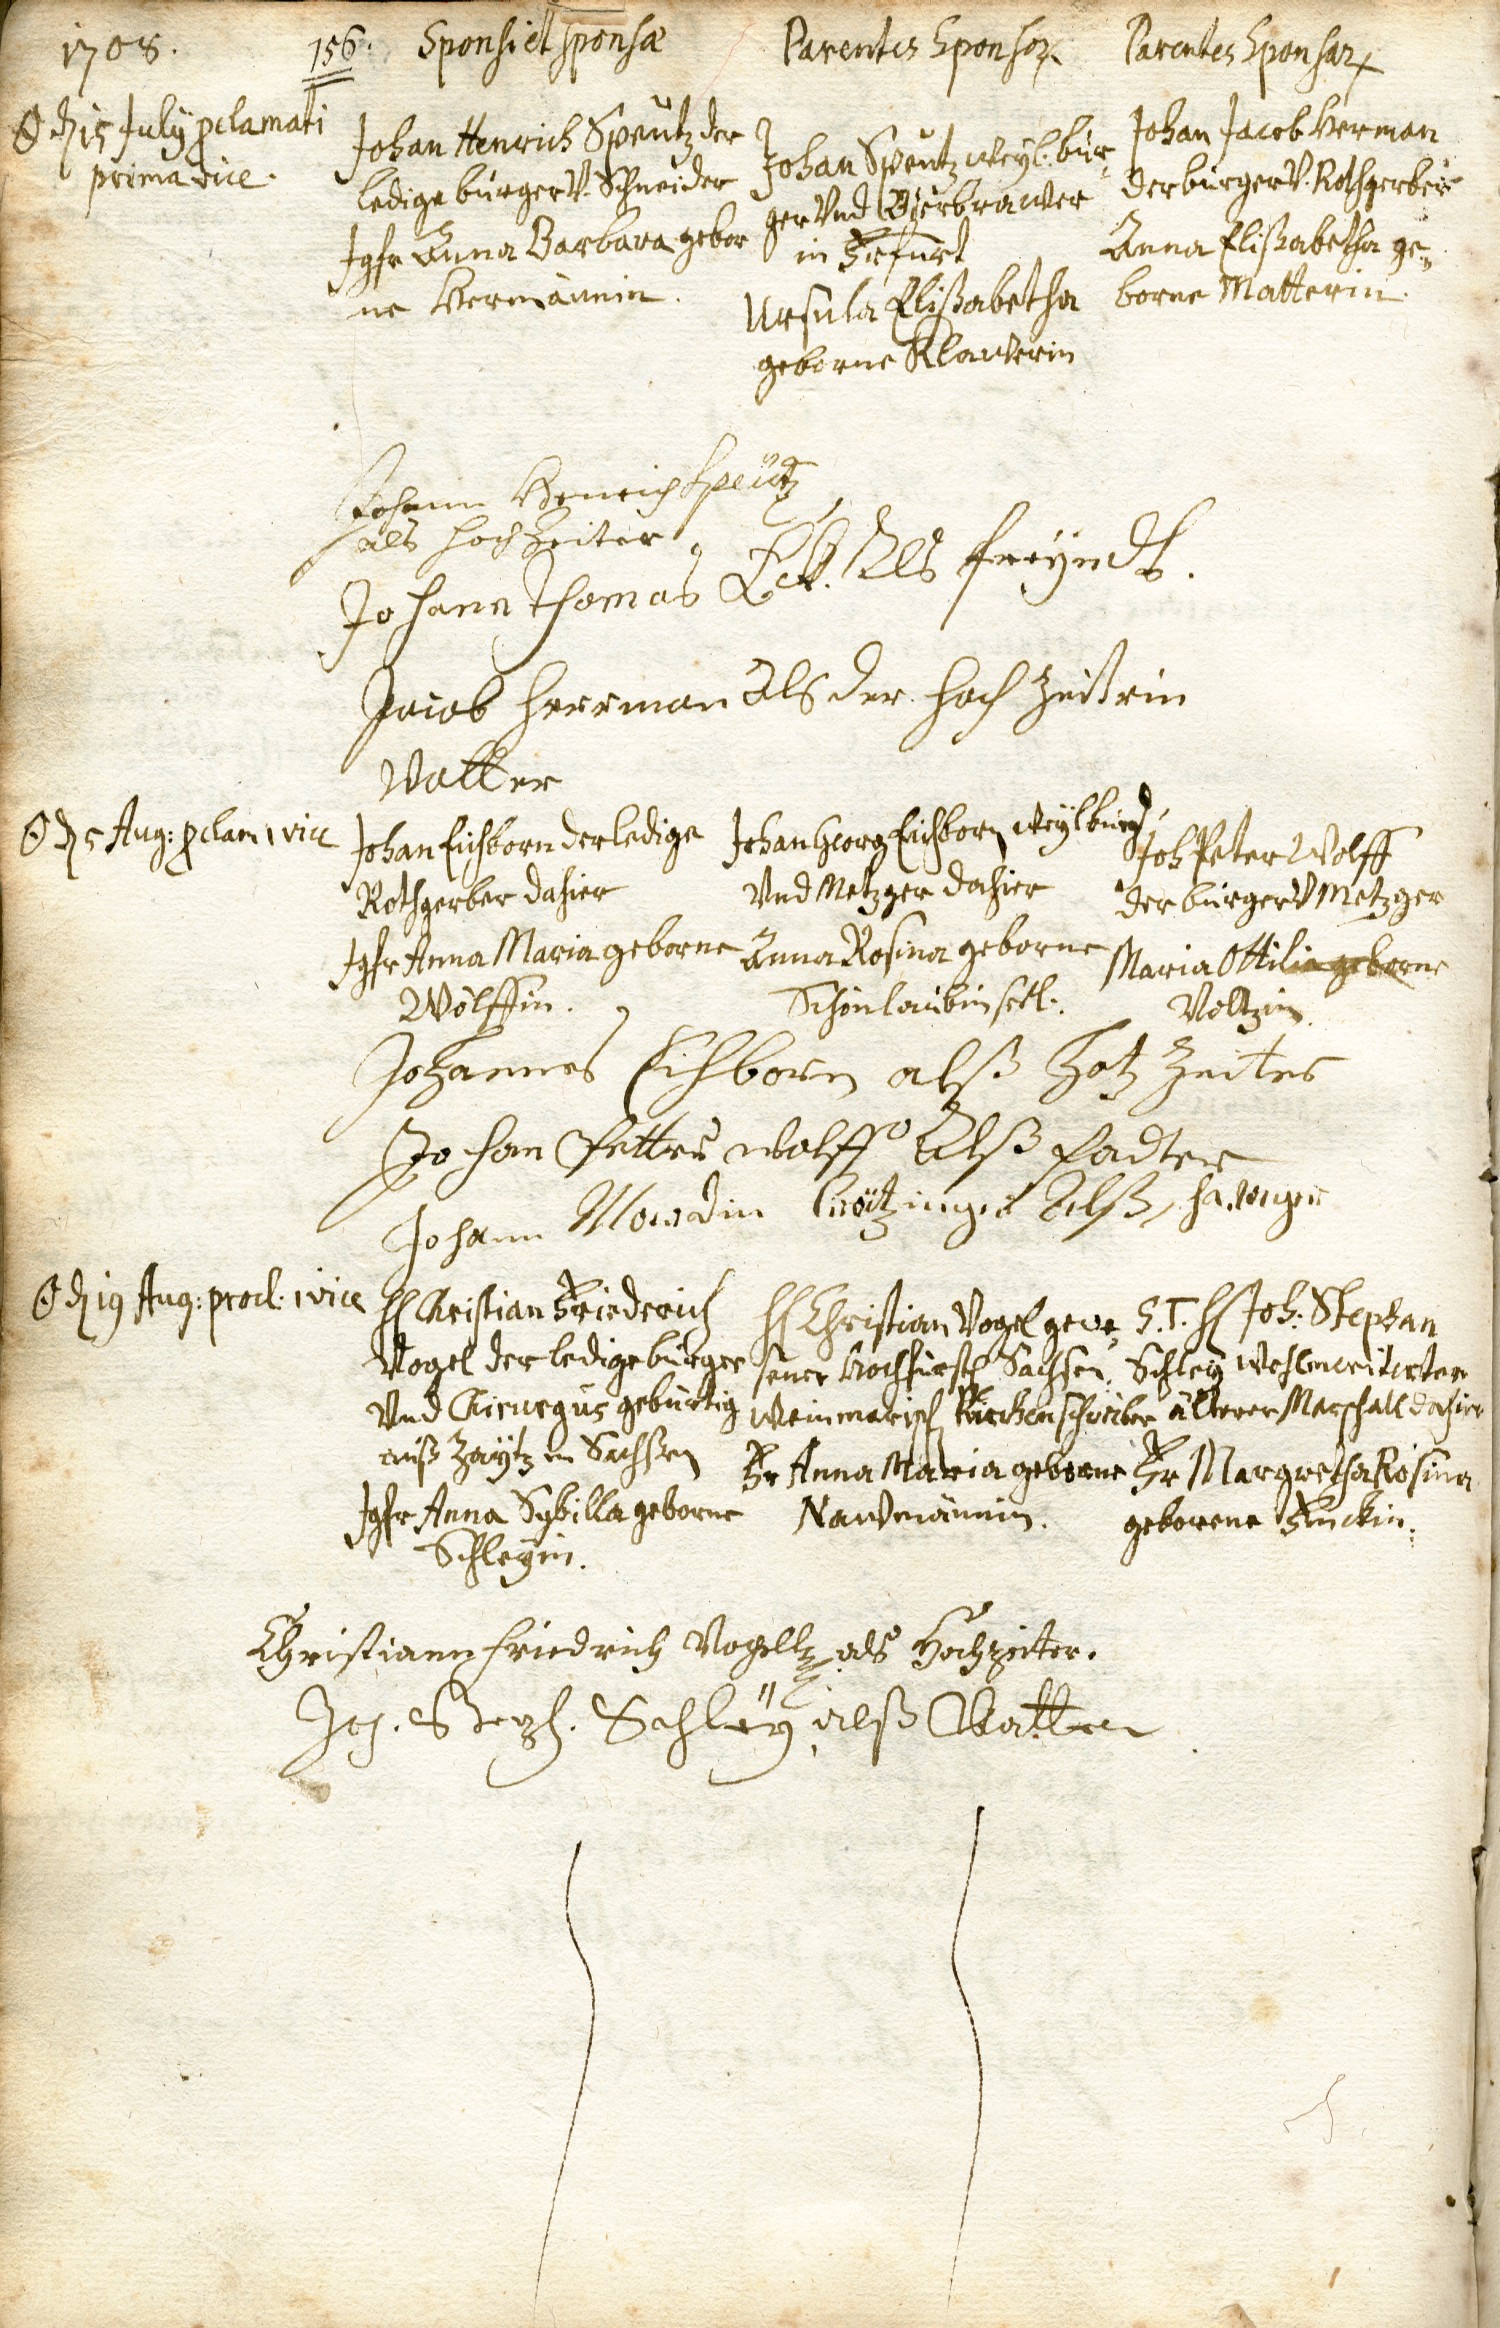 1708.
156.
Sponsi et sponsæ
Parentes Sponsor.
Parentes Sponsar.
☉ d 15 July pclamati
prima vice.
Johan Henrich Speütz der
ledige burger V. Schneider
Jgfr Anna Barbara gebor
ne Hermännin.
Johan Speutz weyl. bur-
ger Vnd Bierbrawer
in Erfurt
Ursula Elißabetha
geborne Klawerin
Johan Jacob Herman
der burger V. Rothgerber
Anna Elißabetha ge-
borne Matterin.
Johann Henrich Speütz
als hoch Zeiter
Johann Thomas Eck. Als freyndt.
Jacob Herrman Als der hoch Zeitrin
Vatter
☉ d 5 Aug: pclam 1 vice
Johan Eichborn der ledige
Rothgerber dahier
Jgfr Anna Maria geborne
Wölffin.
Johan Georg Eichborn weyl burg
Vnd Metzger dahier
Anna Rosina geborne
Schönlaubin seel.
Joh Peter Wolff
der burger V Metzger
Maria Ottilia geborne
Voltzin.
Johannes Eichborn alß Hotz Zeiter
Johan Petter wolff Alß fadter
Johann Alß
☉ d 19 Aug: procl: 1 vice
H Christian Friederich
Vogel der ledige burger
Vnd Chirurgus gebürtig
auß Zeytz in Sachßen
Jgfr Anna Sybilla geborne
Schleyin.
H Christian Vogel gewe-
sener Hochfürstl Sachsen
Weinmarisch Kirchenschreiber
Fr Anna Maria geborne
Nawmännin.
S. T. H Joh. Stephan
Schley Wohlmeritirter
älterer Marschall dahier
Fr Margretha Rosina
geborene Funckin.
Christiann Friedrich Vogell als Hochzeiter.
Joh. Steph. Schleÿ, alß Vatter